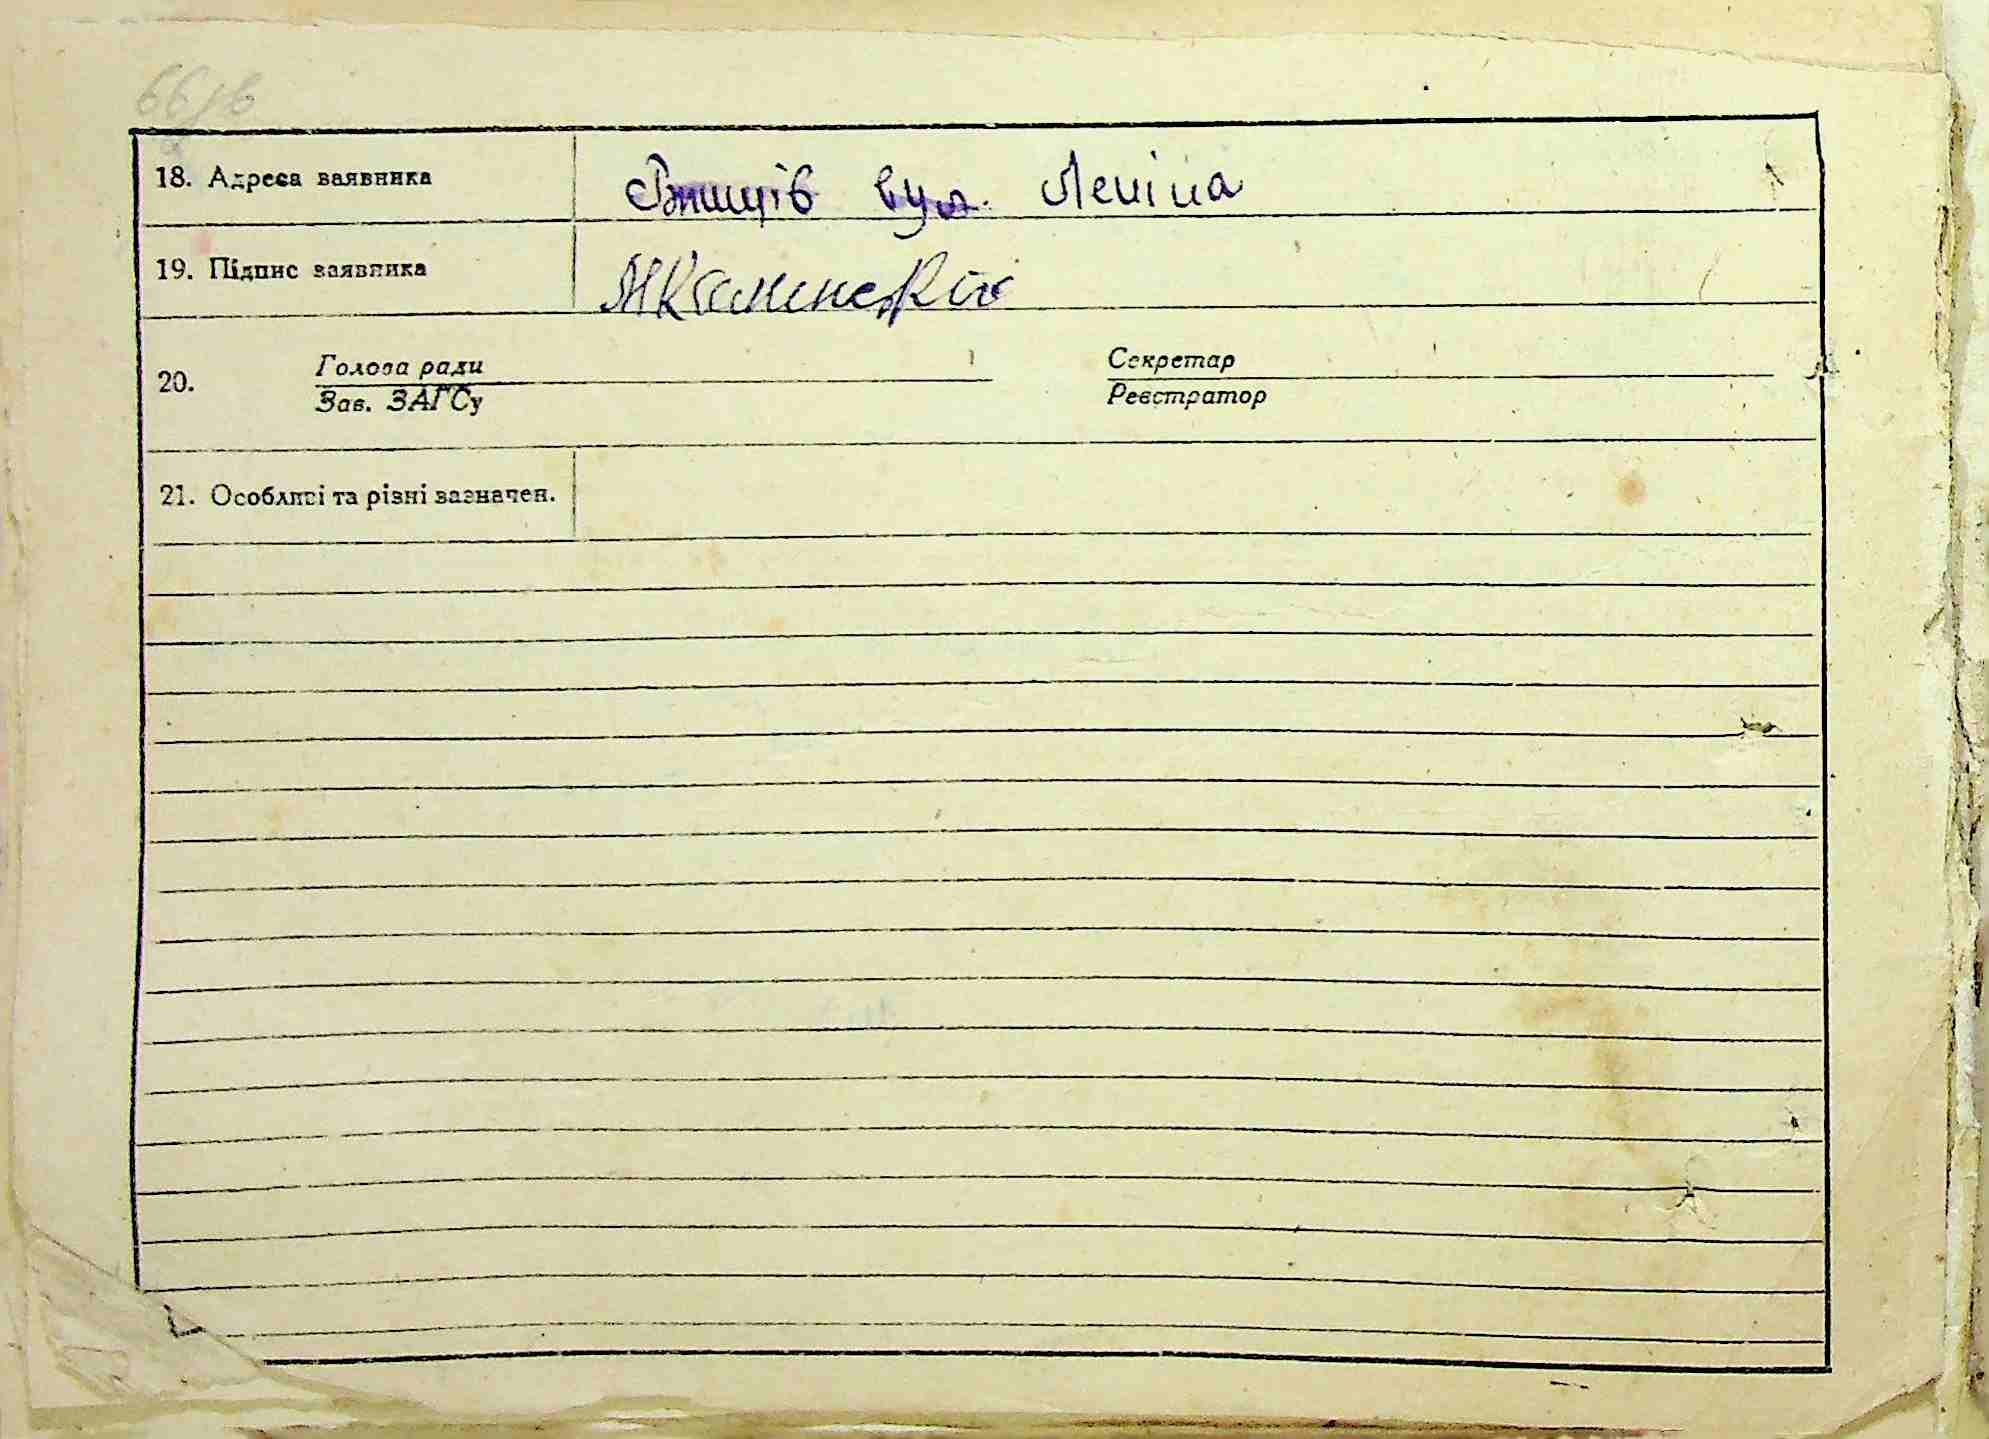 18. Адреса заявника Ржищів вул. Леніна
19. Підпис заявника
20. Голова ради Секретар
Зав. ЗАГСу Реєстратор
21. Особливі та різні зазначен.